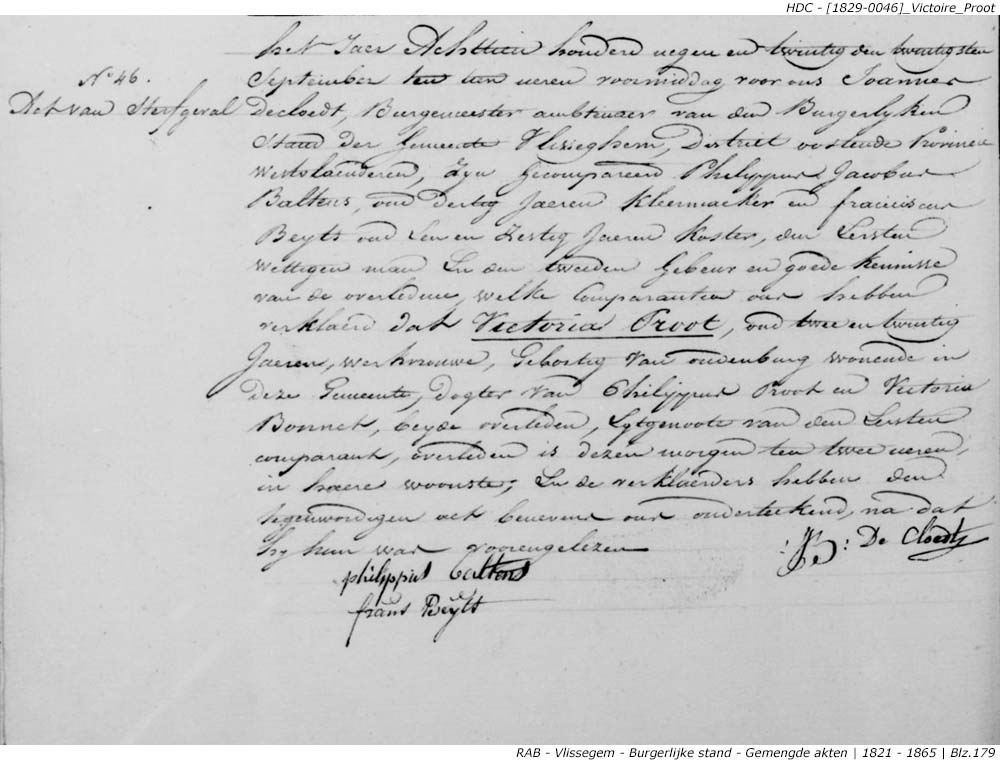 HDC - [1829-0046]_Victoire_Proot
N° 46.
Act van Sterfgeval
het Jaer Achttien honderd negen en twintig den twintigsten
September ten tien ueren voormiddag voor ons Joannes
Decloedt, Burgemeester ambtenaer van den Burgerlyken
Stand der Gemeente Vlisseghem, District oostende Provincie
Westvlaenderen, Zyn Gecompareerd Philippus Jacobus
Baltens, oud dertig Jaeren Kleermaeker en franciscus
Beyts oud Een en Zestig Jaeren Koster, den Eersten
wettigen man En den tweeden Gebeur en goede kennisse
van de overledene, welke Comparanten ons hebben
verklaerd dat Victoria Proot, oud twee en twintig
Jaeren, werkvrouwe, Gebortig van oudenburg woonende in
deze Gemeente, Dogter van Philippus Proot en Victoria
Bonnet, beyde overleden, Egtgenoote van den Eersten
comparant, overleden is dezen morgen ten twee ueren,
in haere woonste; En de verklaerders hebben den
tegenwordigen act benevens ons onderteekend, na dat
hy hun was voorengelezen
De Cloedt
philippus baltens
frans Beyts
RAB - Vlissegem - Burgerlijke stand - Gemengde akten | 1821 - 1865 | Blz.179